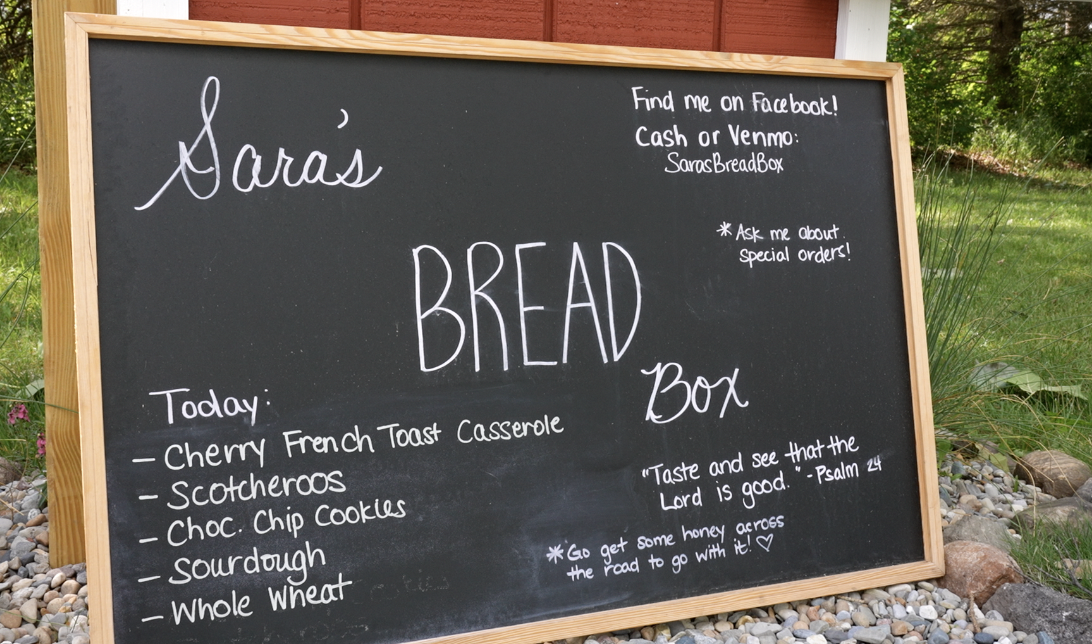 Sara's
BREAD
Box
Find me on Facebook!
Cash or Venmo:
SarasBreadBox
*Ask me about
special orders!
Today:
- Cherry French Toast Casserole
- Scotcheroos
- Choc. Chip Cookies
- Sourdough
- Whole Wheat
"Taste and see that the
Lord is good." -Psalm 24
*Go get some honey across
the road to go with it! ♡